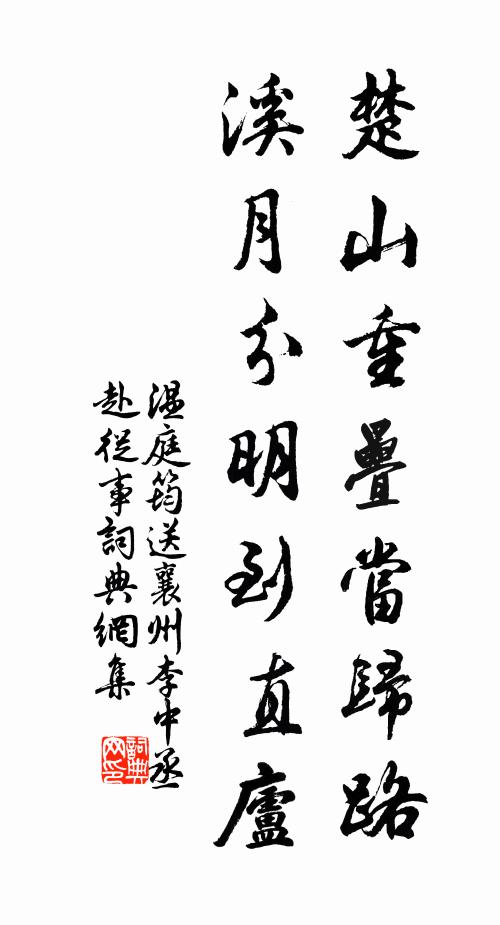 楚山重疊當歸路
溪月分明到直廬
溫庭筠送襄州李中丞
赴從事詞典網集
詞典網印